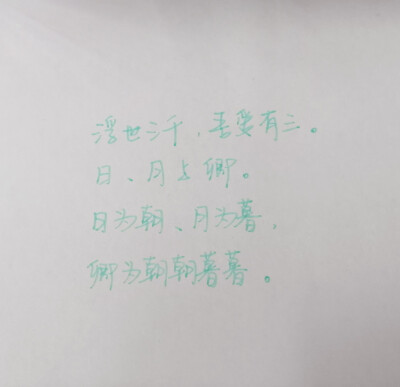 浮世三千，吾爱有三。
日、月与卿。
日为朝、月为暮，
卿为朝朝暮暮。